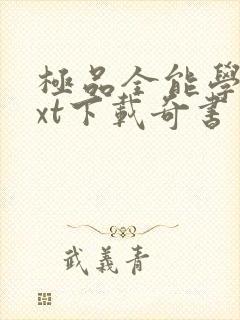 極品全能學
xt下載奇書
武義青